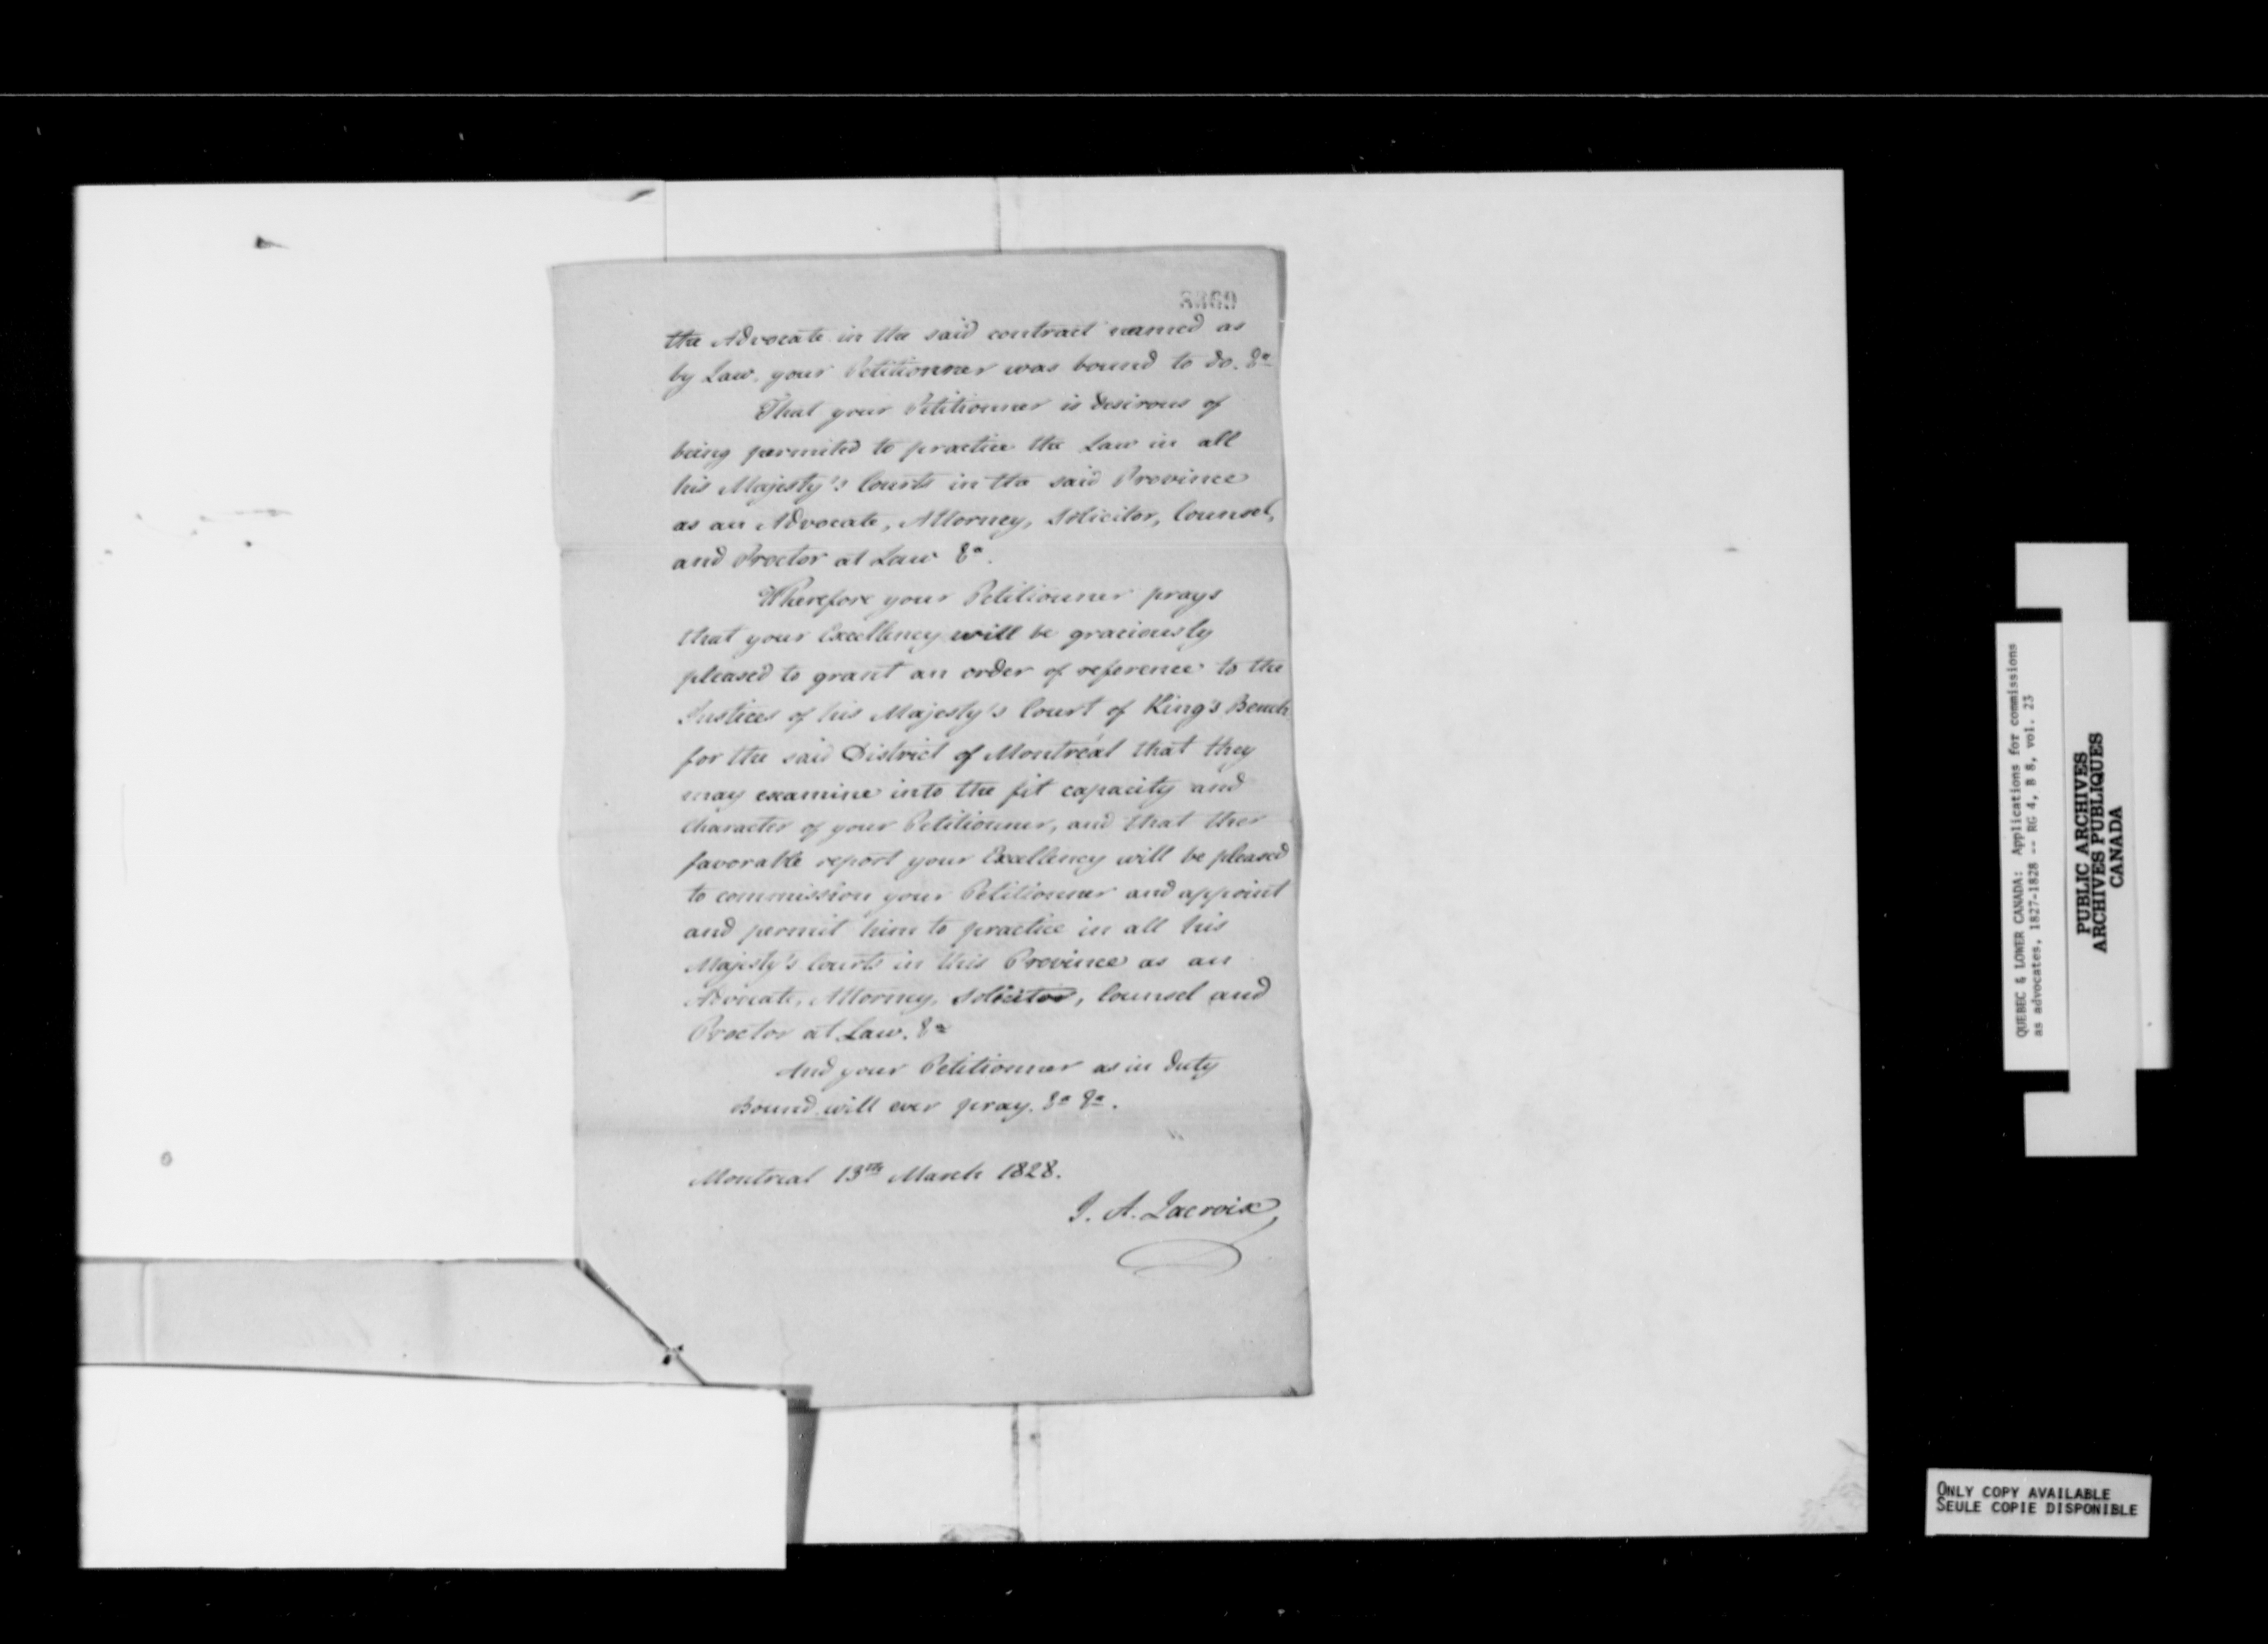 3369
the Advocate in the said contract named as
by Law, your Petitionner was bound to do. &a
That your Petitionner is desirous of
being permited to practice the Law in all
his Majesty's Courts in the said Province
as an Advocate, Attorney, Solicitor, Counsel,
and Proctor at Law &a.
Wherefore your Petitionner prays
that your Excellency will be graciously
pleased to grant an order of reference to the
Justices of his Majesty's Court of King's Bench
for the said District of Montréal that they
may examine into the fit capacity and
Character of your Petitionner, and that their
favorable report your Excellency will be pleased
to commission your Petitionner and appoint
and permit him to practice in all his
Majesty's Courts in this Province as an
Advocate, Attorney, Solicitor, Counsel and
Proctor at Law. &a
And your Petitionner as in duty
Bound will ever pray. &a &a.
Montreal 13th March 1828.
J. A. Lacroix
QUEBEC & LOWER CANADA: Applications for commissions
as advocates, 1827-1828 -- RG 4, B 8, vol. 23
PUBLIC ARCHIVES
ARCHIVES PUBLIQUES
CANADA
ONLY COPY AVAILABLE
SEULE COPIE DISPONIBLE